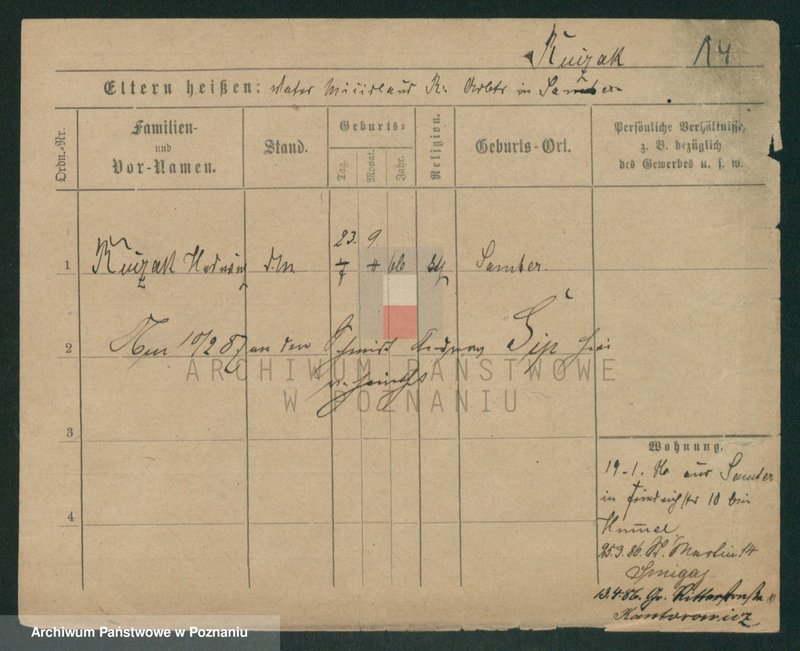 Kuizak 14
Eltern heißen: Vater R. in Samter
Ordn.-Nr.
Familien-
und
Vor-Namen.
Stand.
Geburts-
Tag.
Monat.
Jahr.
Religion.
Geburts-Ort.
Persönliche Verhältnisse,
z. B. bezüglich
des Gewerbes u. s. w.
23. 9.
1 Kuizak Hedwig 66 Samter.
2 10/2 87 an den Schmidt Sip
verheirathet
3
4
Wohnung.
19. 1. 86 aus Samter
in Friedrichstr 10 bei
Hummel
25.3.86. St. Martin 14
Smigaj
13.4.86. Gr. Ritterstraße 10
Kantorowicz
ARCHIWUM PAŃSTWOWE
W POZNANIU
Archiwum Państwowe w Poznaniu